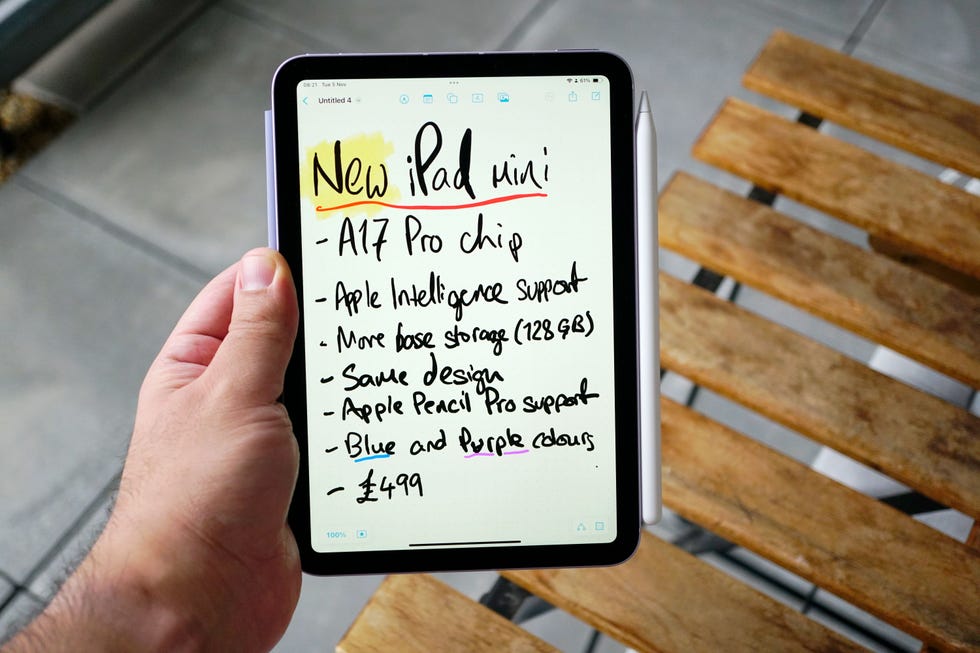 08:21 Tue 5 Nov 61%
Untitled 4
New iPad mini
- A17 Pro chip
- Apple Intelligence support
- More base storage (128GB)
- Same design
- Apple Pencil Pro support
- Blue and Purple colours
- £499
100%